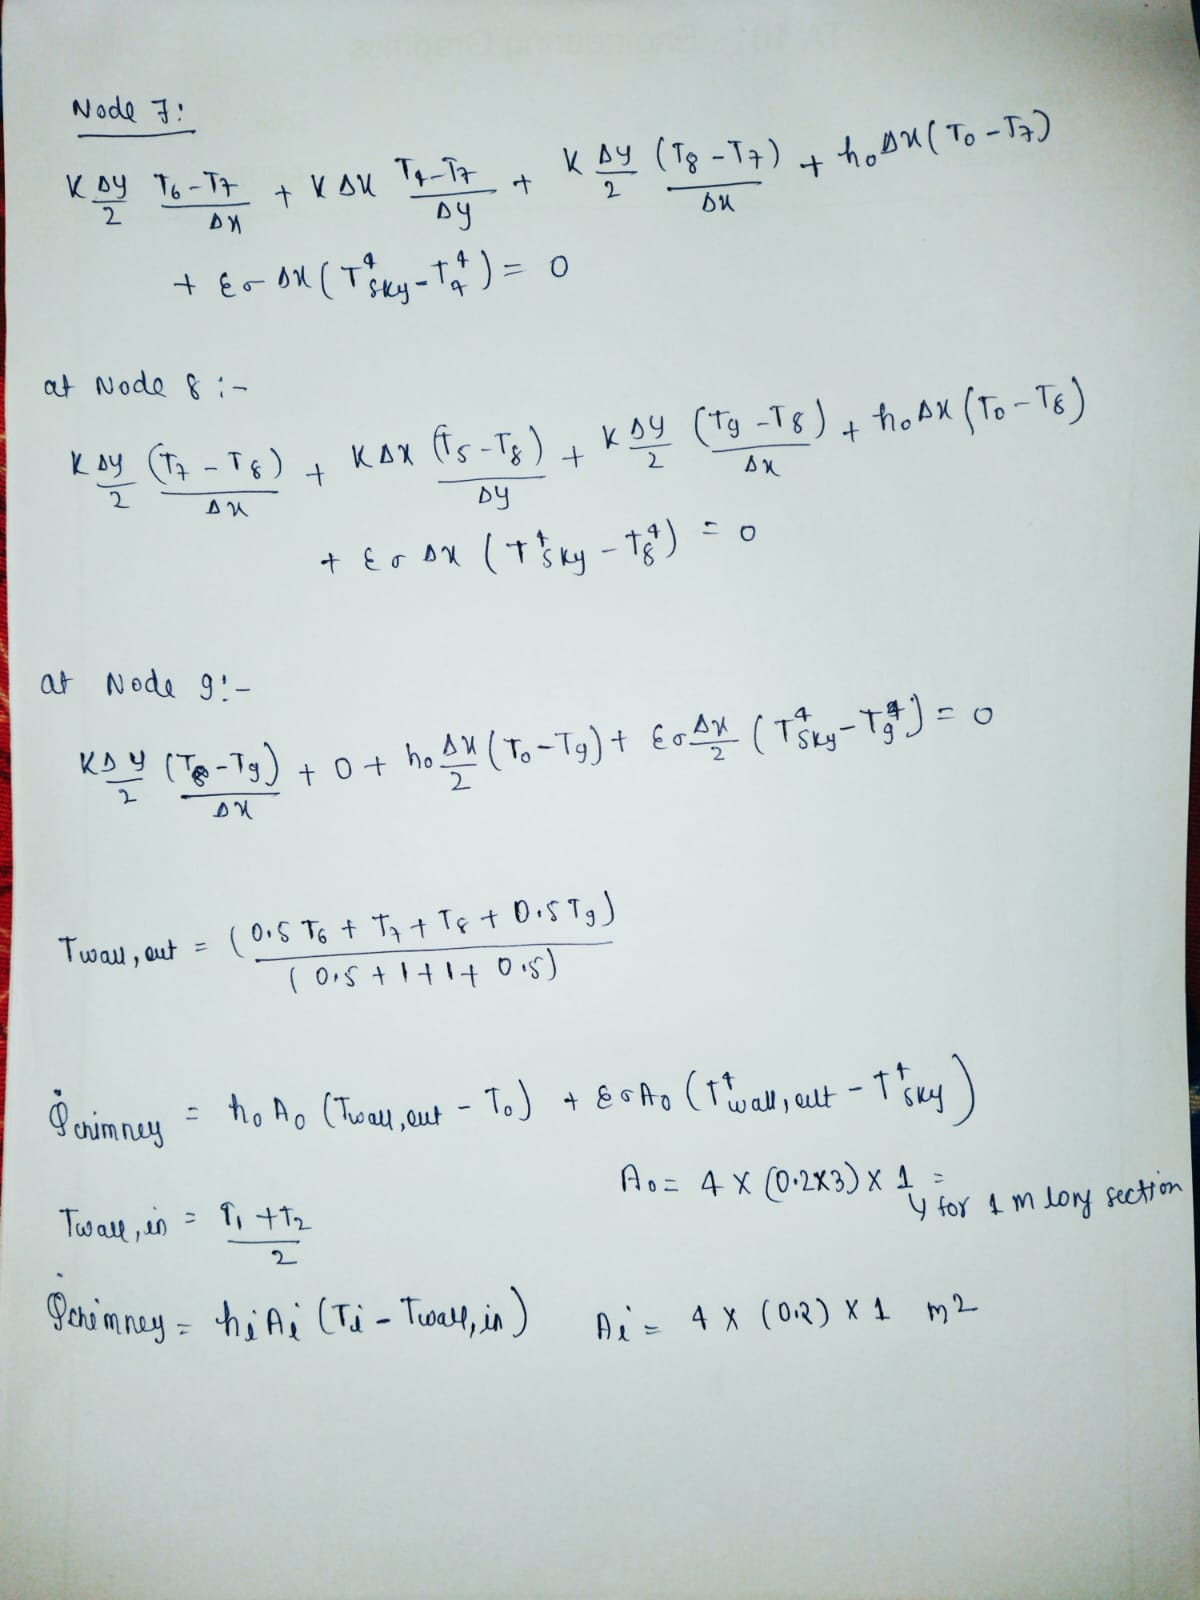 Node 7:
K Δy/2 (T6-T7)/Δx + K Δx (T4-T7)/Δy + K Δy/2 (T8-T7)/Δx + h₀Δx(T₀-T7)
+ εσ Δx(T⁴sky-T⁴7) = 0
at Node 8 :-
K Δy/2 (T7 - T8)/Δx + KΔx (T5-T8)/Δy + K Δy/2 (T9-T8)/Δx + h₀Δx(T₀-T8)
+ εσ Δx (T⁴sky - T8⁴) = 0
at Node 9:-
KΔy/2 (T8-T9)/Δx + 0 + h₀ Δx/2 (T₀-T9) + εσ Δx/2 (T⁴sky-T9⁴) = 0
Twall, out = (0.5 T6 + T7 + T8 + 0.5 T9)/(0.5 + 1+1+ 0.5)
Q̇chimney = h₀ A₀ (Twall,out - T₀) + εσA₀ (T⁴wall,out - T⁴sky)
A₀ = 4 × (0.2×3) × 1 =
↳ for 1 m long section
Twall,in = (T1 + T2)/2
Q̇chimney = hᵢAᵢ (Tᵢ - Twall,in) Aᵢ = 4 × (0.2) × 1 m²